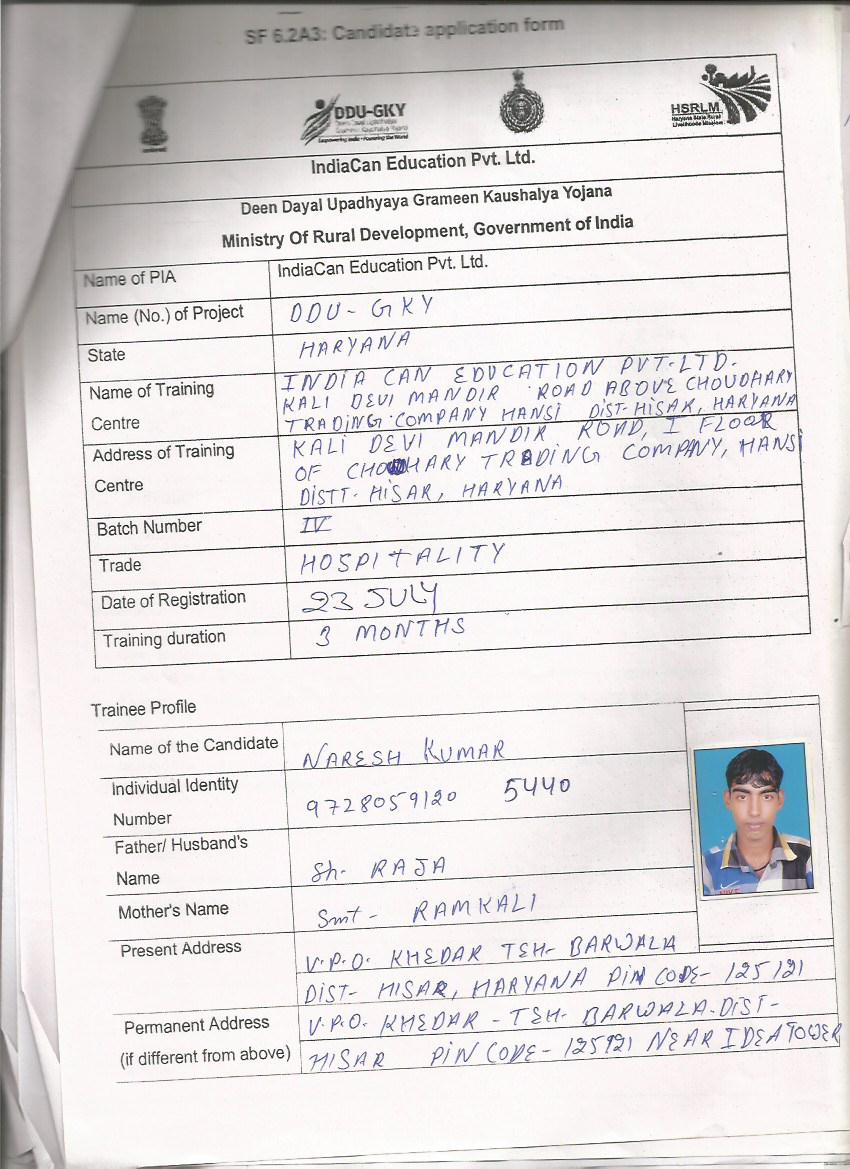 SF 6.2A3: Candidate application form
DDU-GKY
HSRLM
Haryana State Rural
Livelihoods Mission
IndiaCan Education Pvt. Ltd.
Deen Dayal Upadhyaya Grameen Kaushalya Yojana
Ministry Of Rural Development, Government of India
Name of PIA IndiaCan Education Pvt. Ltd.
Name (No.) of Project DDU- GKY
State HARYANA
Name of Training Centre INDIA CAN EDUCATION PVT.LTD.
KALI DEVI MANDIR ROAD ABOVE CHOUDHARY
TRADING COMPANY HANSI DIST-HISAR, HARYANA
Address of Training Centre KALI DEVI MANDIR ROAD, I FLOOR
OF HARY TRADING COMPANY, HANSI
DISTT- HISAR, HARYANA
Batch Number IV
Trade HOSPITALITY
Date of Registration 23 JULY
Training duration 3 MONTHS
Trainee Profile
Name of the Candidate NARESH KUMAR
Individual Identity Number 9728059120 5440
Father/ Husband's Name Sh- RAJA
Mother's Name Smt- RAMKALI
Present Address V.P.O. KHEDAR TEH- BARWALA
DIST- HISAR, HARYANA PIN CODE- 125121
Permanent Address V.P.O. KHEDAR - TEH- BARWALA.DIST-
(if different from above) HISAR PIN CODE- NEAR IDEA TOWER